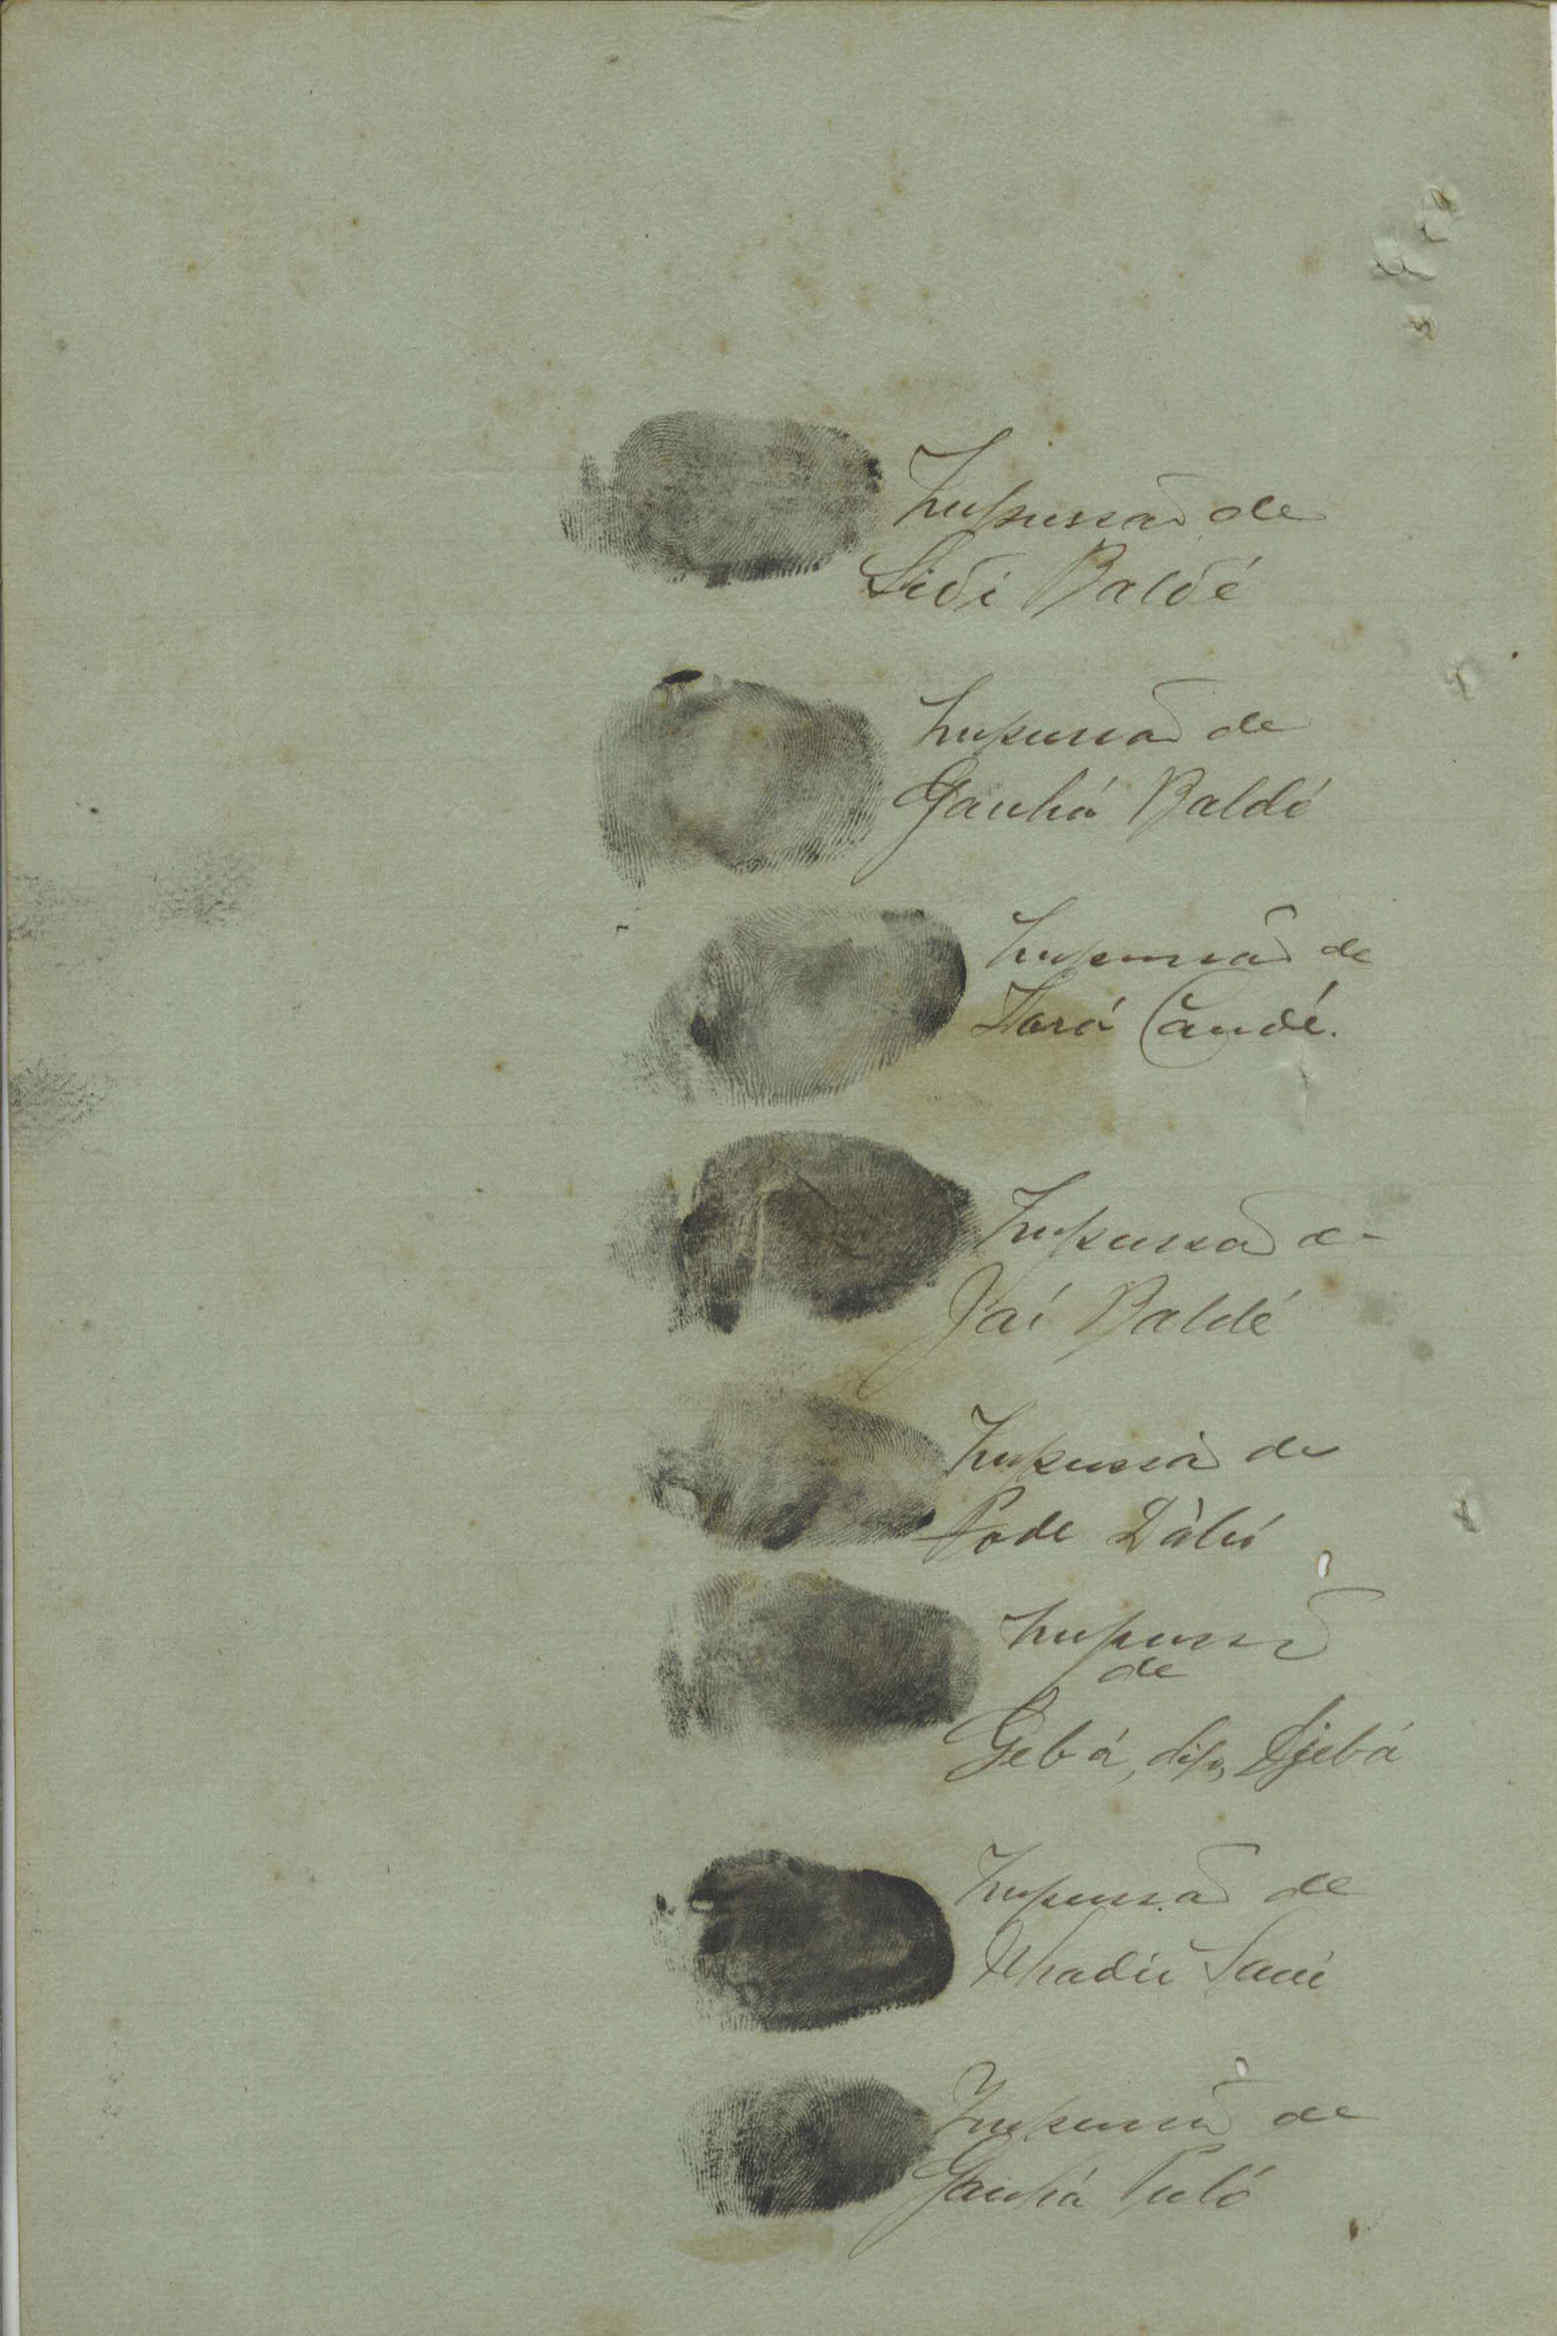 Impressão de
Sidi Baldé
Impressão de
Ganhá Baldé
Impressão de
Iará Candé.
Impressão de
Jaí Baldé
Impressão de
Pode Dábó
Impressão
de
Gebá, digo, Djebá
Impressão de
Sané
Impressão de
Ganhá